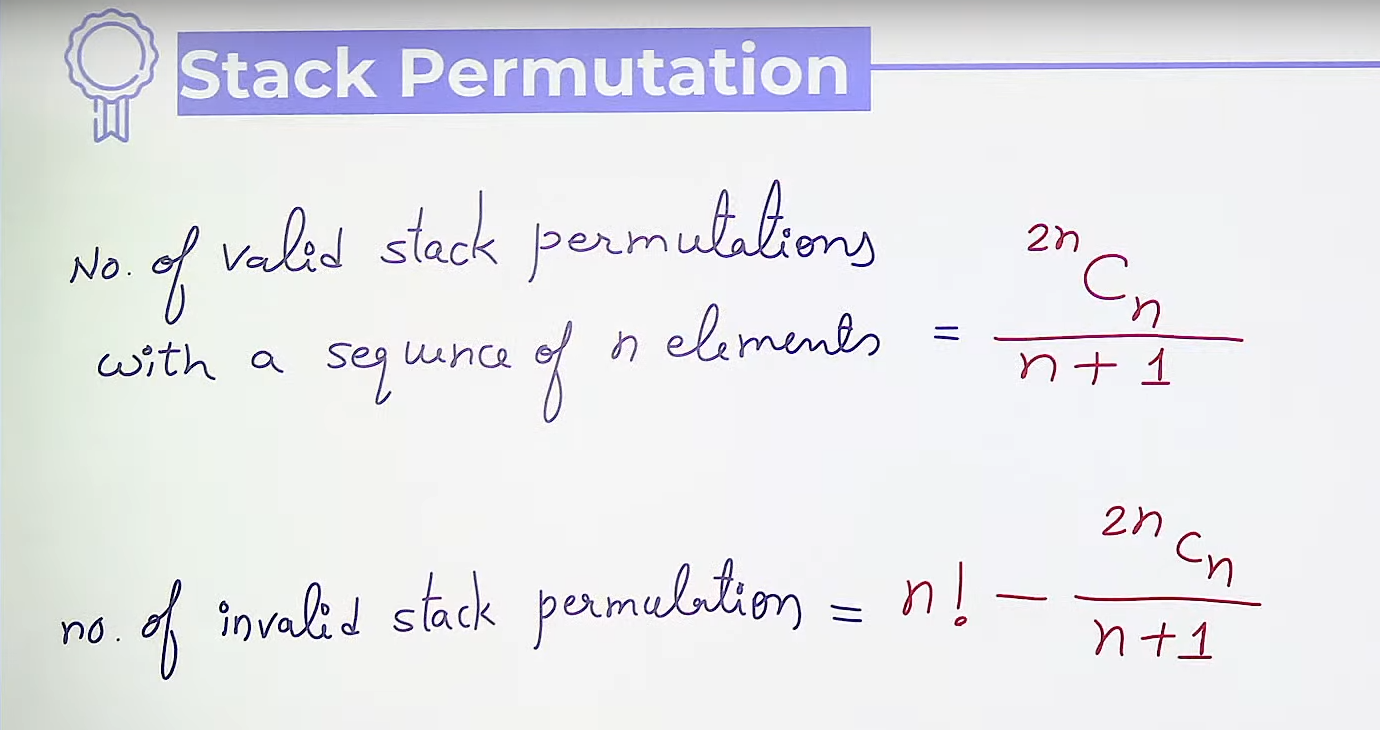 Stack Permutation
No. of valid stack permutations
with a sequence of n elements = ²ⁿCₙ / n+1
no. of invalid stack permutation = n! − ²ⁿCₙ / n+1